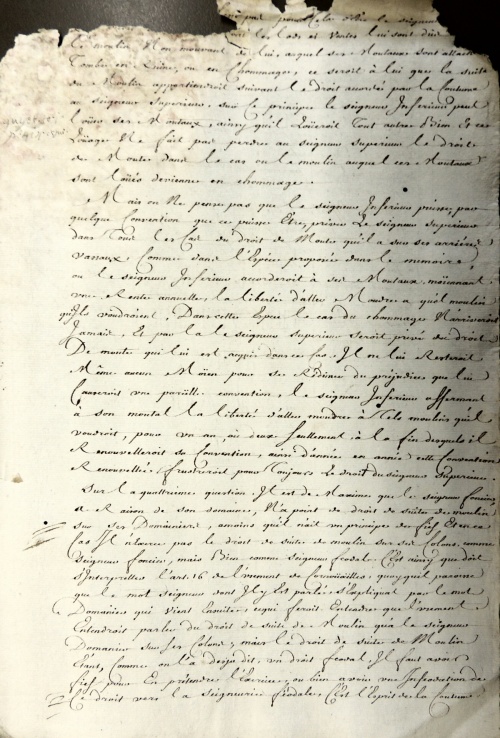 pas pour cela obei le seigneur
les Lods et Ventes lui sont dûs
le moulin Non mouvant de lui, auquel ses Moutaux sont attachés
Tombe en Ruine, ou en Chommage, ce seroit à lui que la suite
du Moulin appartiendroit suivant le droit accordé par la Coutume
au seigneur Superieur, sur ce principe le seigneur Inferieur peut
Loüer ses Moutaux, ainsy qu'il Loüeroit Tout autre bien Et ce
Loüage Ne fait pas perdre au seigneur Superieur Le Droit
de Moute dans le cas ou le moulin auquel ces Moutaux
sont loüés devienne en chommage.
Mais on Ne pense pas que le seigneur Inferieur puisse, par
quelque Convention que ce puisse Etre, priver Le seigneur Superieur
dans Tous les Cas du droit de Moute qu'il a sur ses arrieres
vassaux, Comme dans l'Espece proposée dans le memoire,
ou le seigneur Inferieur accorderoit à ses Moutaux, moïennant
une Rente annuelle, la liberté d'aller Moudre a quel moulin
qu'Ils voudroient, Dans cette Espece le cas du chommage N'arriveroit
Jamais, Et par la le seigneur superieur seroit privé du droit
De moute qui lui est acquis dans ce cas. Il ne lui Resteroit
Même aucun Moïen pour se Rédimer du préjudice que lui
Causeroit une pareille convention, le seigneur Inferieur affermant
à son moutal la liberté d'aller moudre à Tels moulins qu'il
voudroit, pour un an, ou deux seullement à la fin desquels il
Renouvelleroit sa Convention, ainsi d'année en année cette Convention
Renouvellée frustreroit pour Toujours Le droit du seigneur Superieur.
Sur la quattrieme question. Il est de Maxime que le seigneur foncier
a Raison de son domaine, N'a point de droit de suite de moulin
sur ses Domaniers, amoins qu'il n'ait un principe de fief Et en ce
Cas Il n'exerce pas le droit de suite de moulin sur ses Colons comme
Seigneur foncier, mais Bien comme seigneur feodal. C'Est ainsy que doit
s'Interpretter l'art. 16 de l'usement de Cornoüailles, quoyqu'il paroisse
que le mot seigneur dont Il y Est parlé s'applique par le mot
Domanier qui vient Ensuite, ce qui feroit Entendre que l'usement
Entendroit parler du droit de suite de Moulin que le seigneur
Domanier sur ses Colons; mais le droit de suite de Moulin
Etant, Comme on l'a desja dit, un droit feodal, Il faut avoir
fief pour En prétendre l'Exercice, ou bien avoir une Infeodation de
Ce droit vers la seigneurie feodale, C'Est l'Esprit de la Coutume